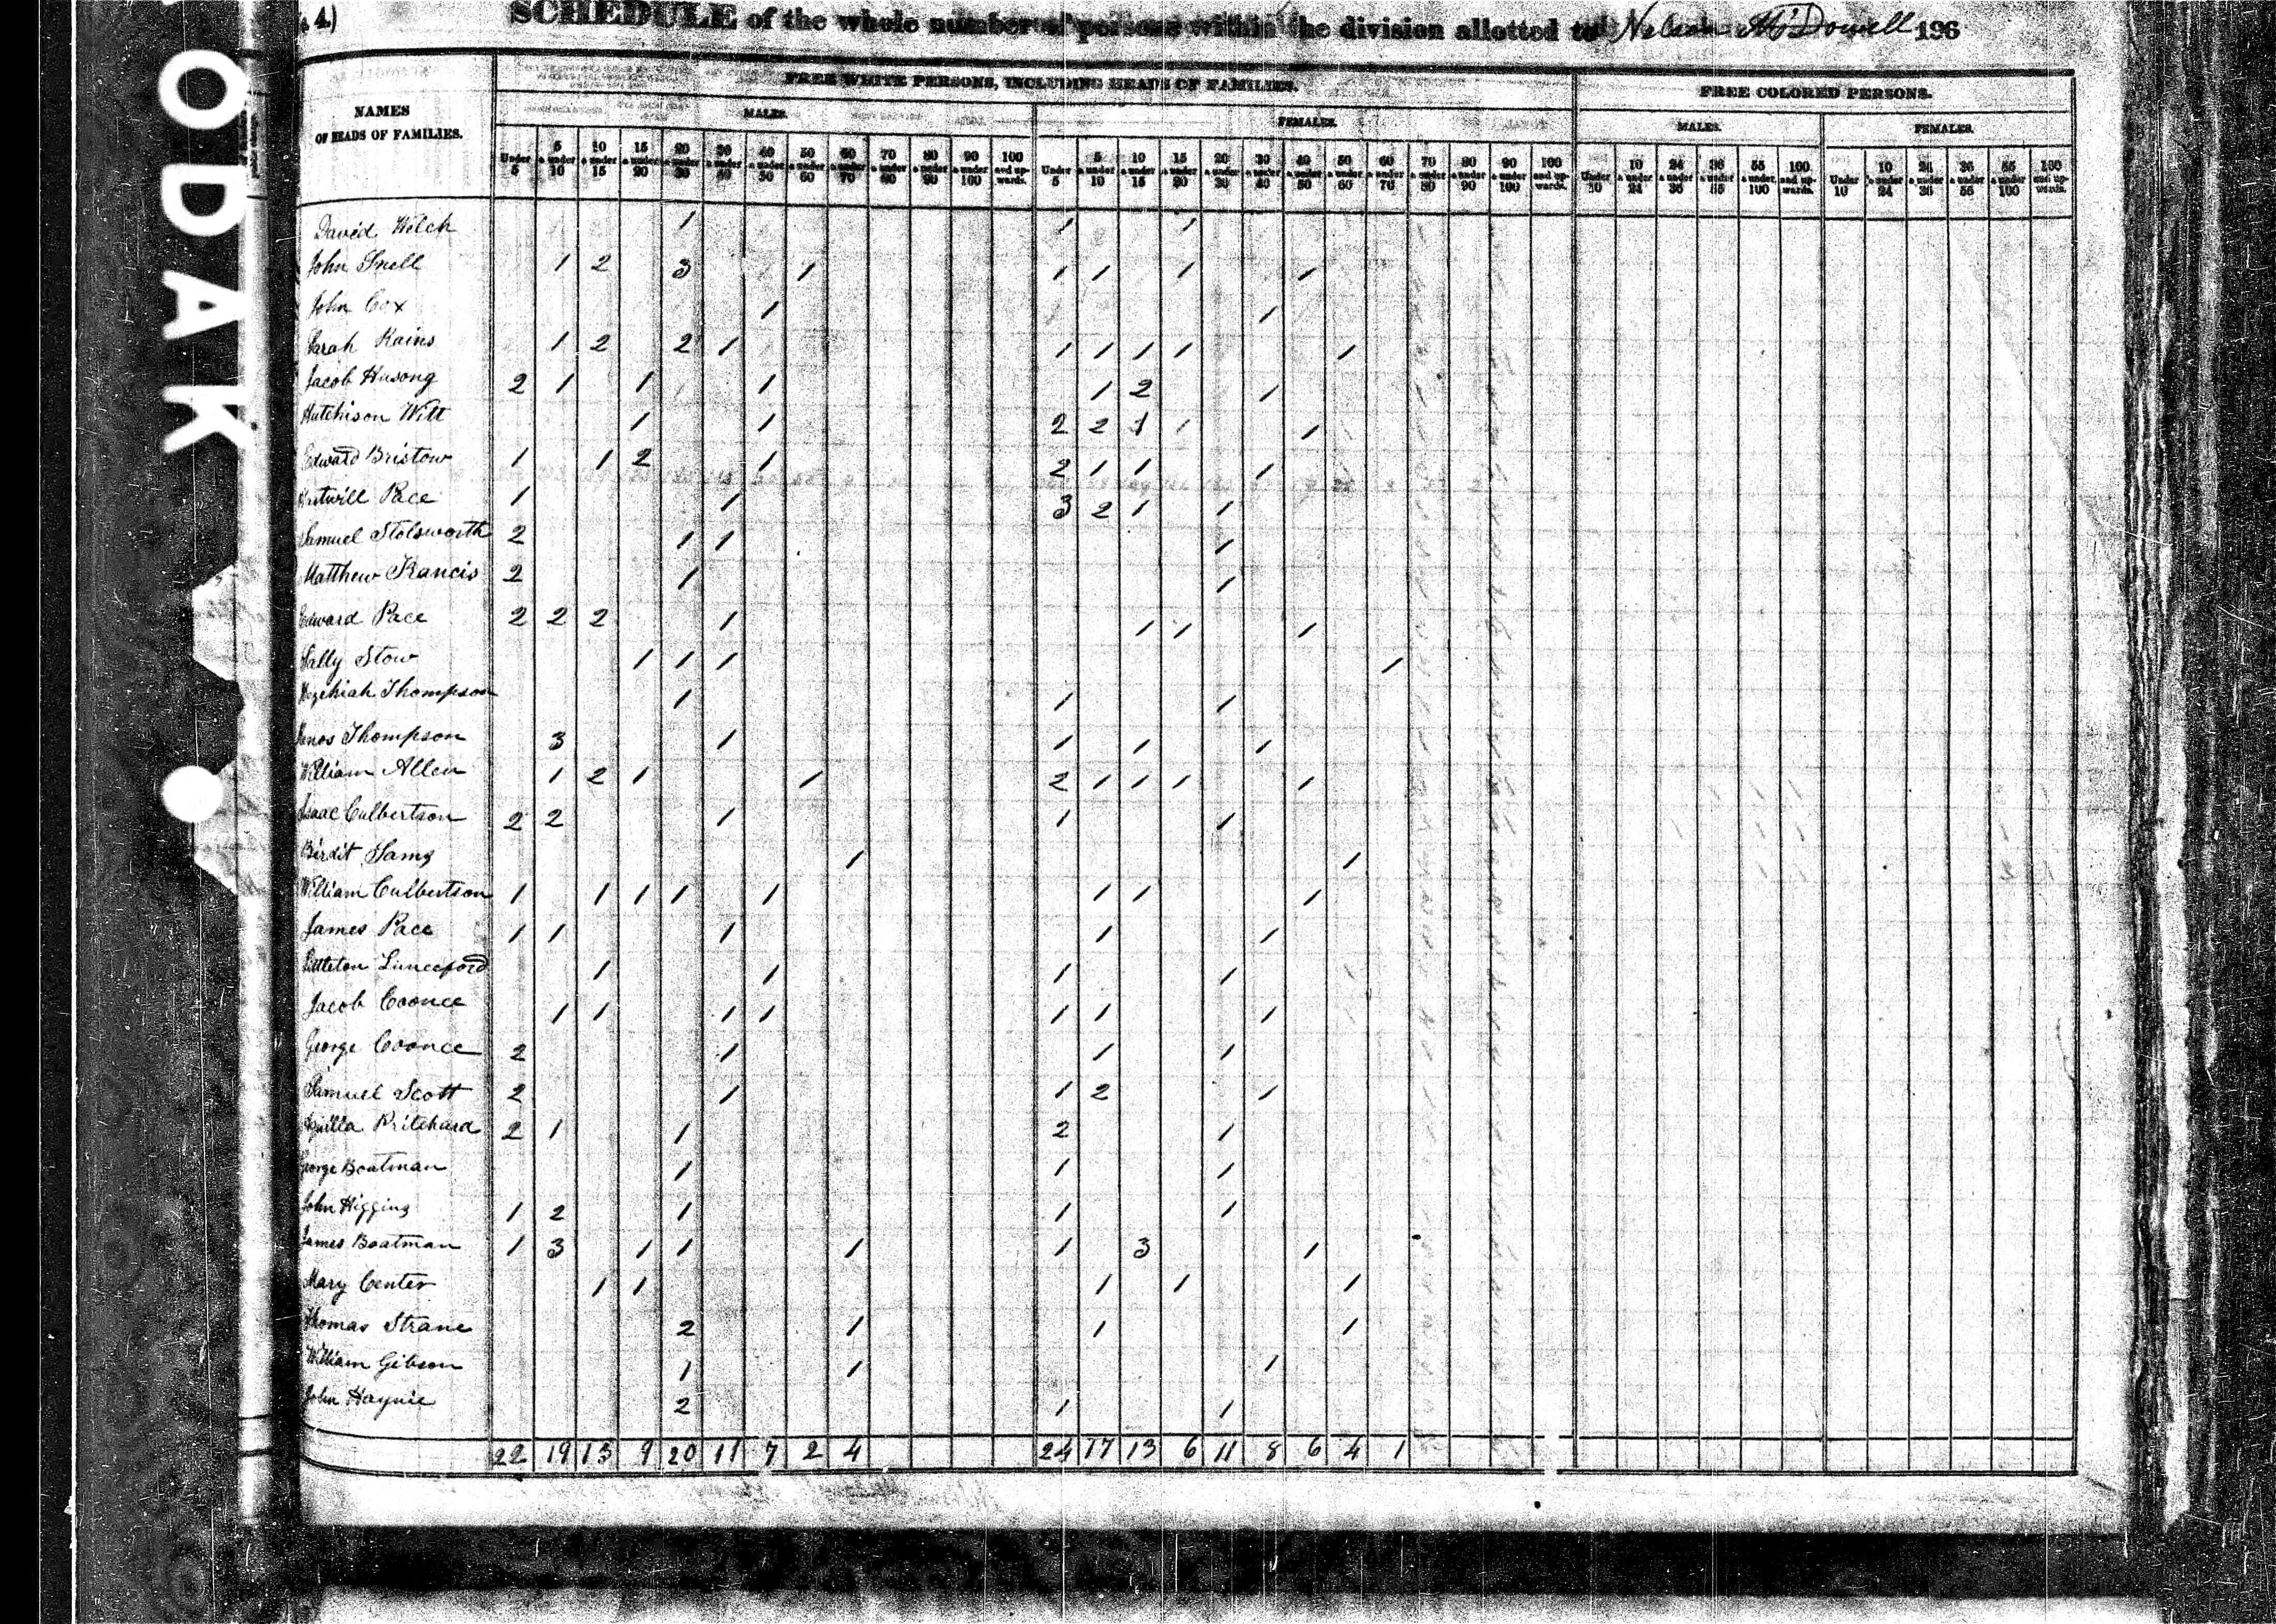 4.) SCHEDULE of the whole number of persons within the division allotted to Nelson McDowell 196
FREE WHITE PERSONS, INCLUDING HEADS OF FAMILIES. FREE COLORED PERSONS.
NAMES OF HEADS OF FAMILIES. MALES. FEMALES. MALES. FEMALES.
Under 5 | 5 & under 10 | 10 & under 15 | 15 & under 20 | 20 & under 30 | 30 & under 40 | 40 & under 50 | 50 & under 60 | 60 & under 70 | 70 & under 80 | 80 & under 90 | 90 & under 100 | 100 and upwards. | Under 5 | 5 & under 10 | 10 & under 15 | 15 & under 20 | 20 & under 30 | 30 & under 40 | 40 & under 50 | 50 & under 60 | 60 & under 70 | 70 & under 80 | 80 & under 90 | 90 & under 100 | 100 and upwards. | Under 10 | 10 & under 24 | 24 & under 36 | 36 & under 55 | 55 & under 100 | 100 and upwards. | Under 10 | 10 & under 24 | 24 & under 36 | 36 & under 55 | 55 & under 100 | 100 and upwards.
David Welch 1 1 1
John Snell 1 2 3 1 1 1 1 1
John Cox 1 1
Sarah Rains 1 2 2 1 1 1 1 1 1
Jacob Husong 2 1 1 1 1 2 1
Hutchison Witt 1 1 2 2 1 1 1
Edward Bristow 1 1 2 1 2 1 1 1
Pace 1 1 3 2 1 1
Samuel Stolsworth 2 1 1 1
Matthew Francis 2 1 1
Edward Pace 2 2 2 1 1 1 1
Sally Stow 1 1 1 1
Hezekiah Thompson 1 1 1
Thompson 3 1 1 1 1
William Allen 1 2 1 1 2 1 1 1 1
Isaac Culbertson 2 2 1 1 1
Birdit Sams 1 1
William Culbertson 1 1 1 1 1 1 1 1
James Pace 1 1 1 1 1
Littleton Lunceford 1 1 1 1
Jacob Coonce 1 1 1 1 1 1 1
George Coonce 2 1 1 1
Samuel Scott 2 1 1 2 1
Pritchard 2 1 1 2 1
George Boatman 1 1 1
John Higgins 1 2 1 1 1
James Boatman 1 3 1 1 1 1 3 1
Mary Center 1 1 1 1 1
Thomas Strane 2 1 1 1
William Gibson 1 1 1
John Haynie 2 1 1
22 19 13 9 20 11 7 2 4 24 17 13 6 11 8 6 4 1
KODAK